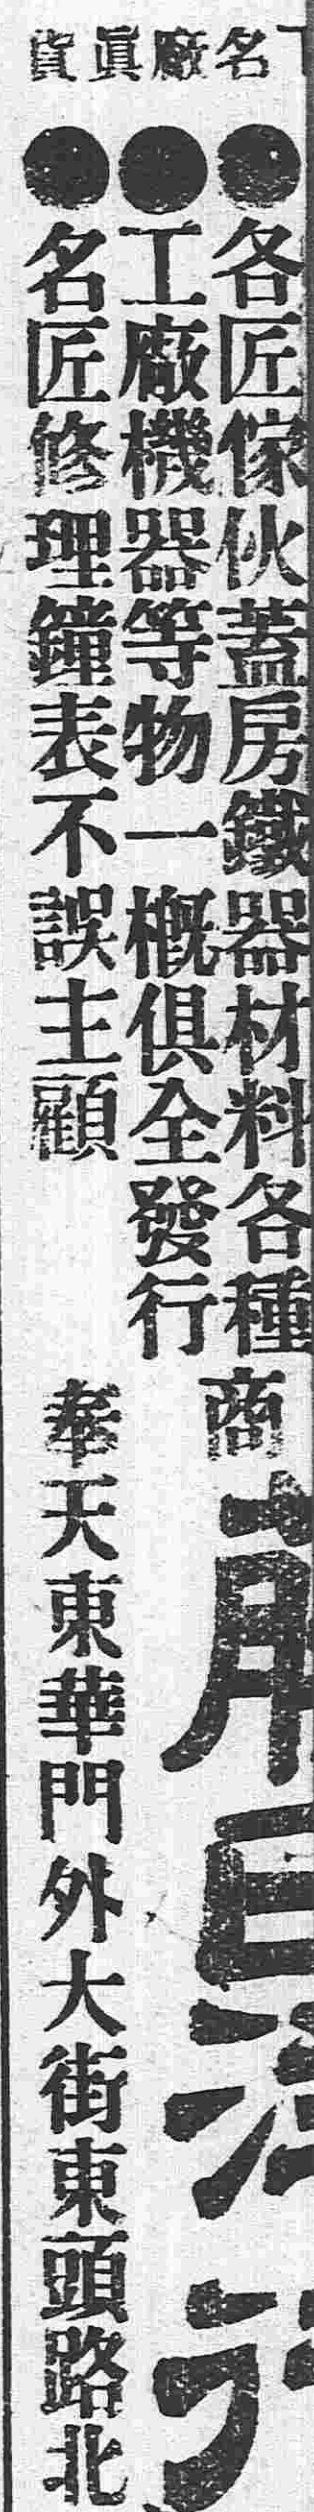 名廠眞貨
●各匠傢伙蓋房鐵器材料各種
●工廠機器等物一概俱全發行
●名匠修理鐘表不誤主顧
商
奉天東華門外大街東頭路北